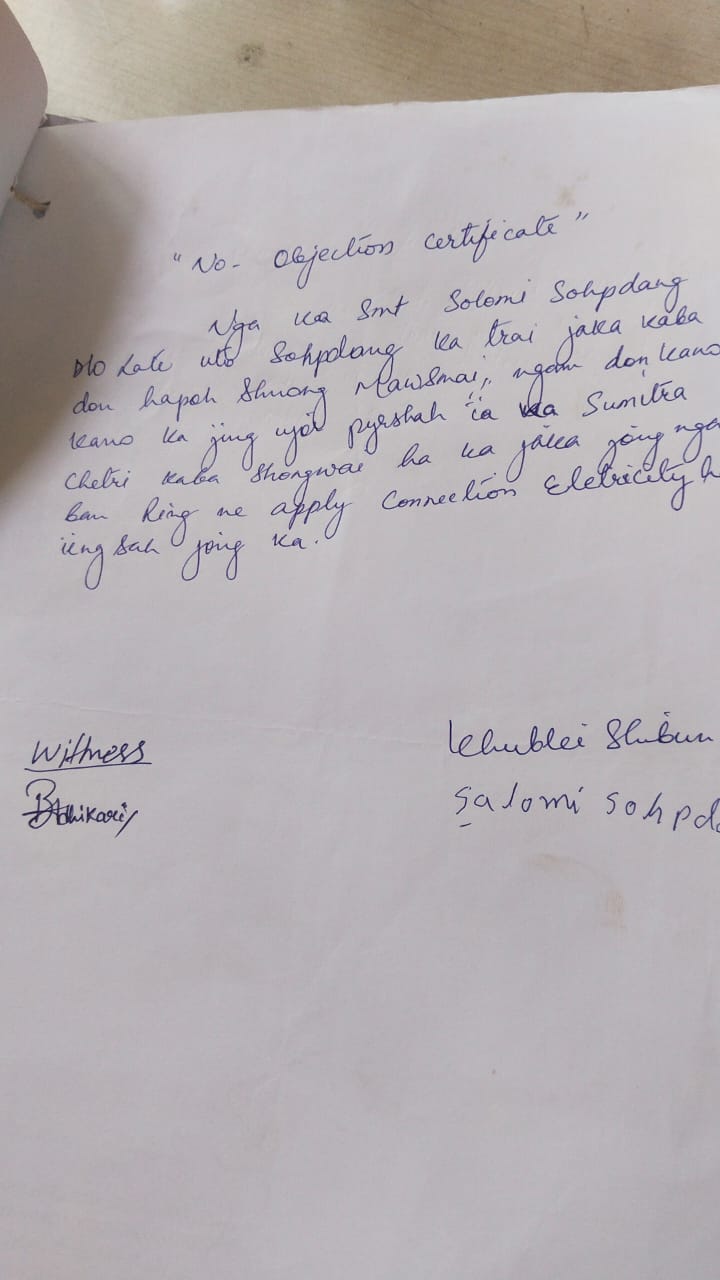 "No- Objection certificate"
Nga ka Smt Solomi Sohpdang
D/o Late uto Sohpdang ka trai jaka kaba
don hapoh Shnong Mawsmai, ngam don kano
kano ka jing ujor pyrshah ïa ka Sumitra
Chetri kaba Shongwai ha ka jaka jong nga
ban Ring ne apply Connection Eletricity
ïing sah jong ka.
Witness
Khublei Shibun
BAdhikari
Salomi Sohpd